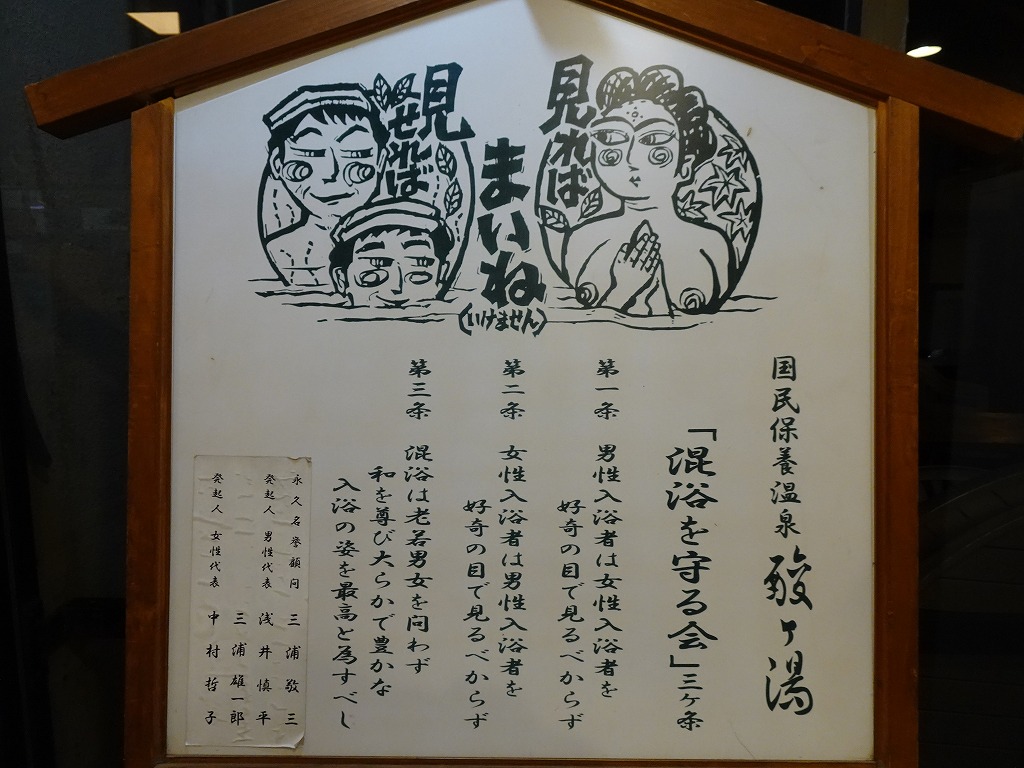 見れば
まいね
(いけません)
見
せれば
国民保養温泉 酸ヶ湯
「混浴を守る会」三ヶ条
第一条 男性入浴者は女性入浴者を
好奇の目で見るべからず
第二条 女性入浴者は男性入浴者を
好奇の目で見るべからず
第三条 混浴は老若男女を問わず
和を尊び大らかで豊かな
入浴の姿を最高と為すべし
永久名誉顧問 三浦敬三
三浦雄一郎
発起人 男性代表 浅井慎平
発起人 女性代表 中村哲子